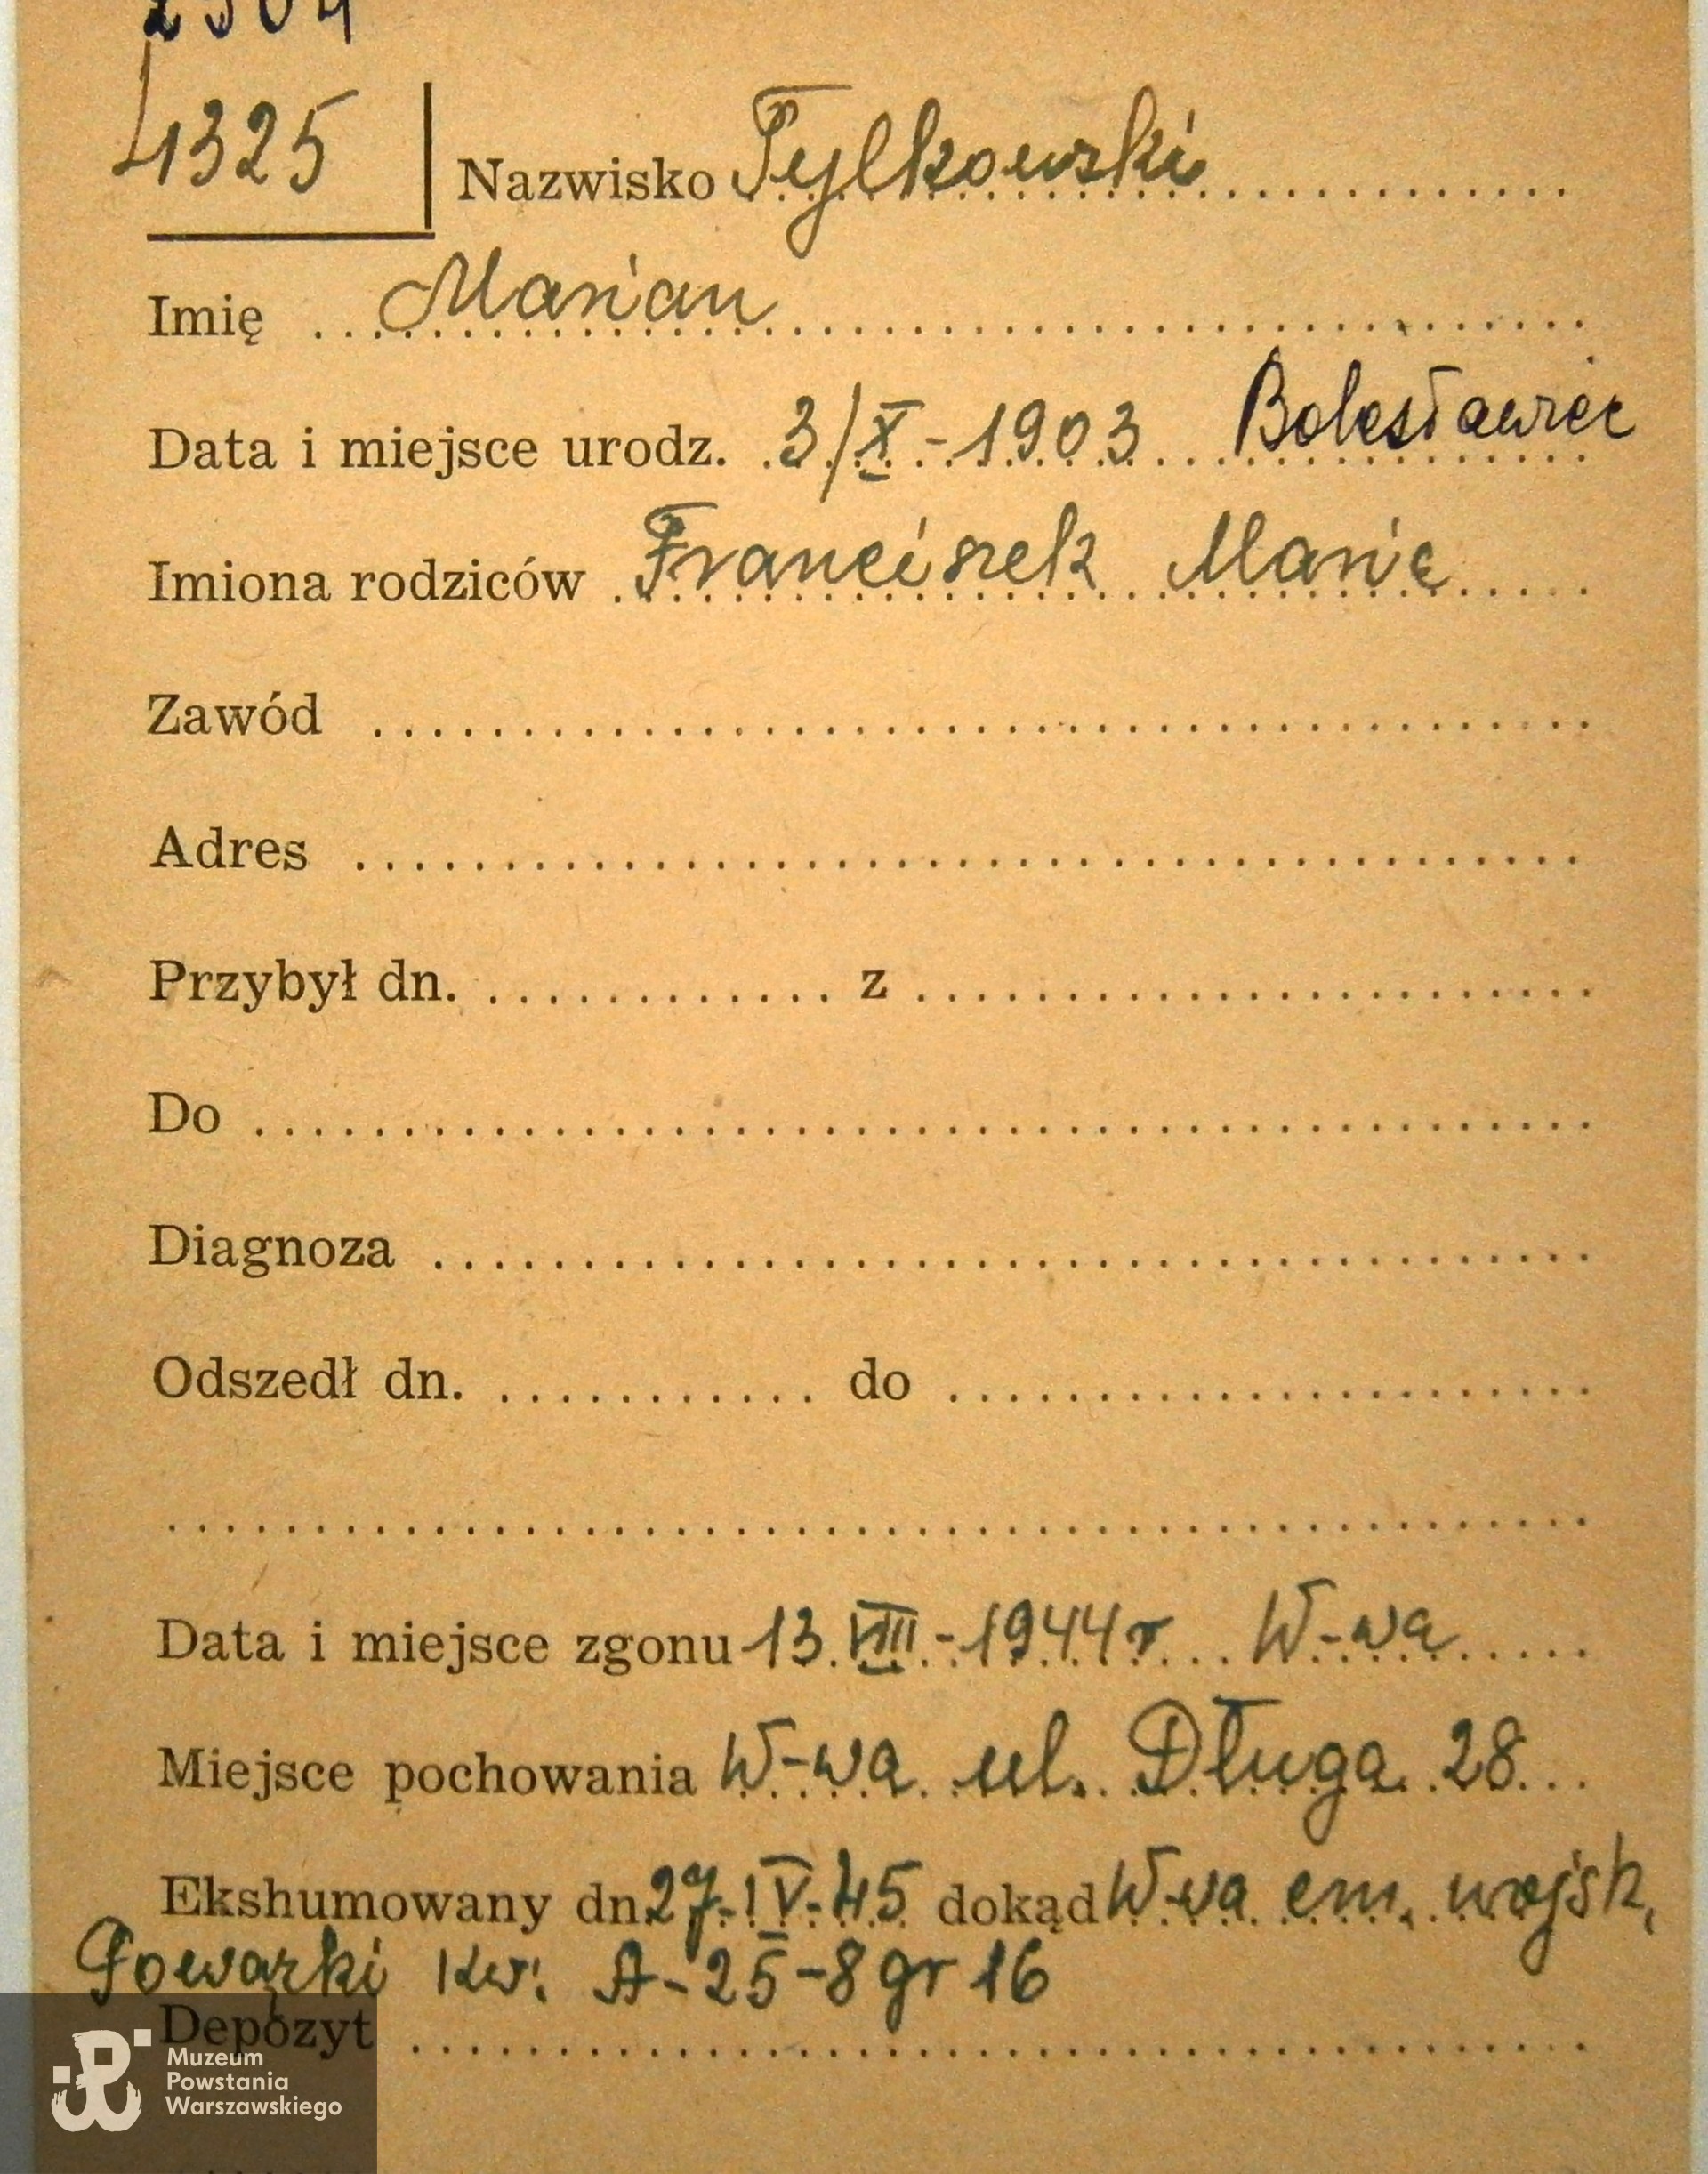 4325
Nazwisko Tylkowski
Imię Marian
Data i miejsce urodz. 3/X-1903 Bolesławiec
Imiona rodziców Franciszek Maria
Zawód
Adres
Przybył dn. z
Do
Diagnoza
Odszedł dn. do
Data i miejsce zgonu 13.VIII-1944 r W-wa
Miejsce pochowania W-wa ul. Długa 28
Ekshumowany dn. 27-IV-45 dokąd W-wa cm. wojsk.
Powązki Kw: A-25-8 gr 16
Depozyt
Muzeum
Powstania
Warszawskiego